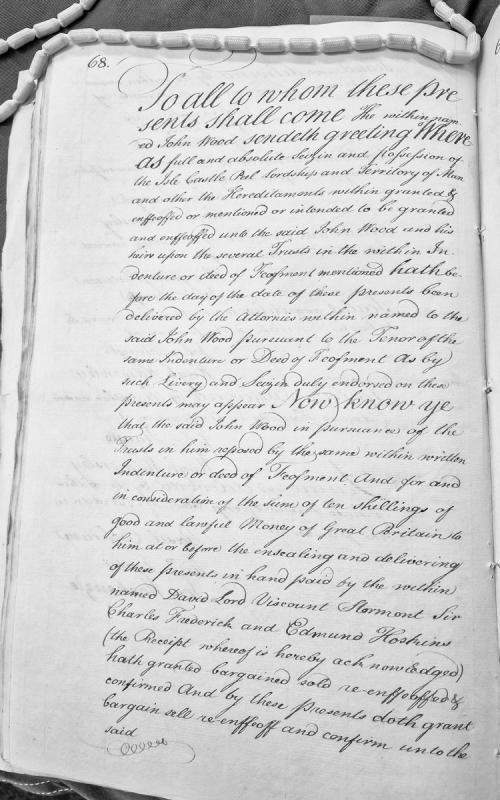 68.
To all to whom these pre
sents shall come The within nam
ed John Wood sendeth greeting Where
as full and absolute Seizin and Possession of
the Isle Castle Peel Lordships and Territory of Man
and other the Hereditaments within granted &
enffeoffed or mentioned or intended to be granted
and enffeoffed unto the said John Wood and his
heirs upon the several Trusts in the within In
denture or deed of Feofment mentioned hath be
fore the day of the date of these presents been
delivered by the Attornies within named to the
said John Wood pursuant to the Tenor of the
same Indenture or Deed of Feofment As by
such Livery and Seizin duly endorsed on these
presents may appear Now know ye
that the said John Wood in pursuance of the
Trusts in him reposed by the same within written
Indenture or deed of Feofment And for and
in consideration of the sum of ten shillings of
good and lawful Money of Great Britain to
him at or before the ensealing and delivering
of these presents in hand paid by the within
named David Lord Viscount Stormont Sir
Charles Frederick and Edmund Hoskins
(the Receipt whereof is hereby acknowledged)
hath granted bargained sold re-enffeoffed &
confirmed And by these presents doth grant
bargain sell re-enffeoff and confirm unto the
said